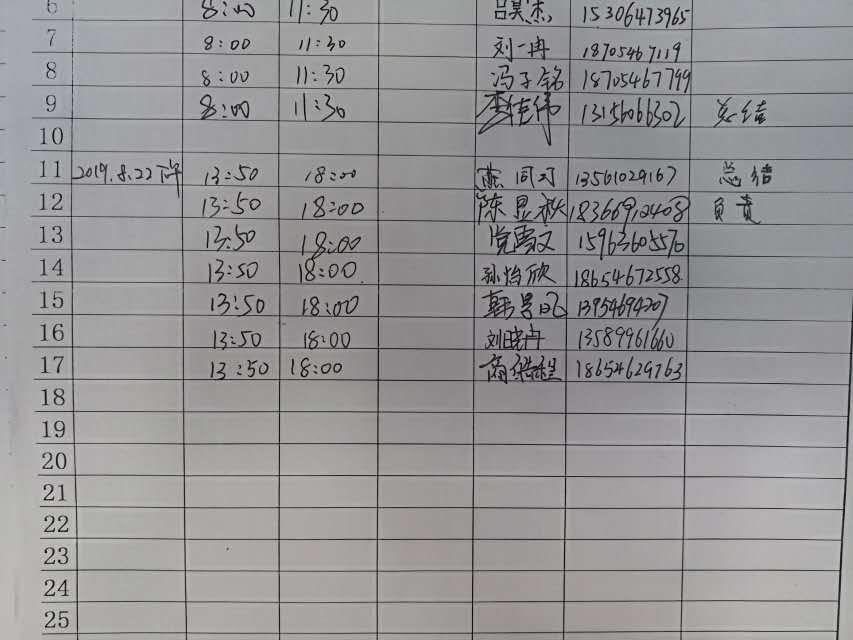 6 8:00 11:30 吕昊杰 15306473965
7 8:00 11:30 刘一冉 18705467119
8 8:00 11:30 冯子铭 18705467799
9 8:00 11:30 李佳伟 13156066302 总结
10
11 2019.8.22下午 13:50 18:00 同 13561029167 总结
12 13:50 18:00 陈显 18366912408 负责
13 13:50 18:00 党雪文 15963605570
14 13:50 18:00 孙怡欣 18654672558
15 13:50 18:00 韩 13954694207
16 13:50 18:00 刘晓冉 13589961660
17 13:50 18:00 商 18654629763
18
19
20
21
22
23
24
25